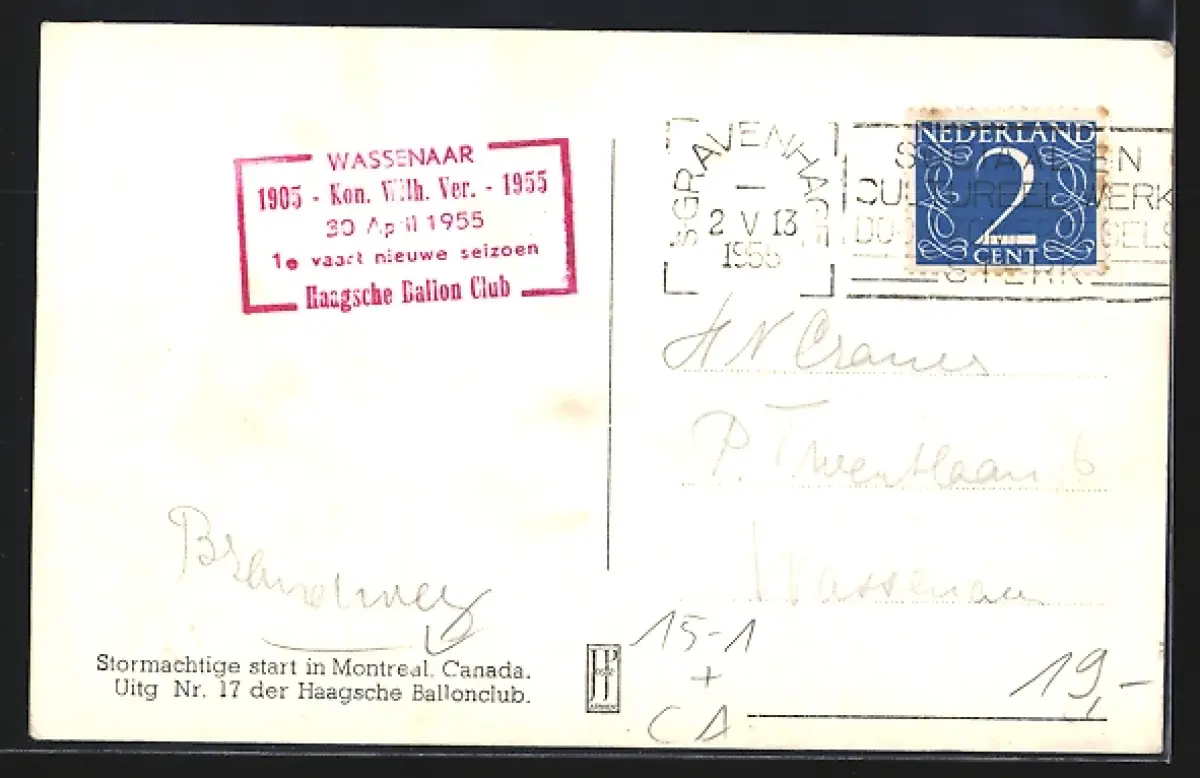 WASSENAAR
1905 - Kon. Wilh. Ver. - 1955
30 April 1955
1e vaart nieuwe seizoen
Haagsche Ballon Club
SGRAVENHAGE
2 V 13
1955
NEDERLAND
2
CENT
SOCIAAL EN
CULTUREEL WERK
STERK
H N Cramer
P. Twentlaan 6
Wassenaar
Stormachtige start in Montreal. Canada.
Uitg Nr. 17 der Haagsche Ballonclub.
JP
15-1
+
CA
19,-